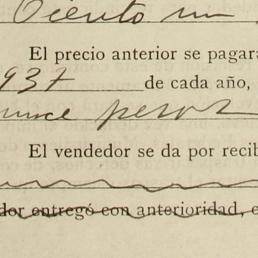 Ociento un
El precio anterior se pagara
937 de cada año,
pesos
El vendedor se da por recib
dor entregó con anterioridad, e